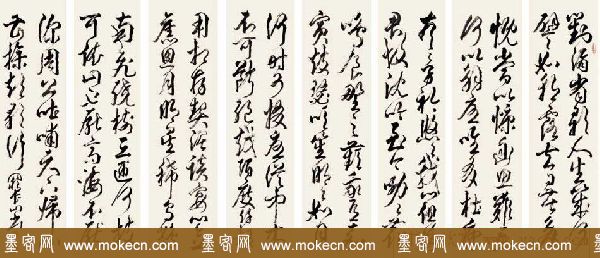 對酒當歌人生幾何
譬如朝露去日苦多
慨當以慷幽思難
何以解憂唯有杜康
青青子衿悠悠我心但
君故沈吟至今呦呦鹿
鳴食野之苹我有嘉
賓鼓瑟吹笙明明如月
何時可掇憂從中來
不可斷絕越陌度阡
用相存契闊談讌心
舊恩月明星稀烏鵲
南飛繞樹三匝何枝
可依山不厭高海不厭
深周公吐哺天下歸
墨客网 www.mokecn.com 墨客网 www.mokecn.com 墨客网 www.mokecn.com